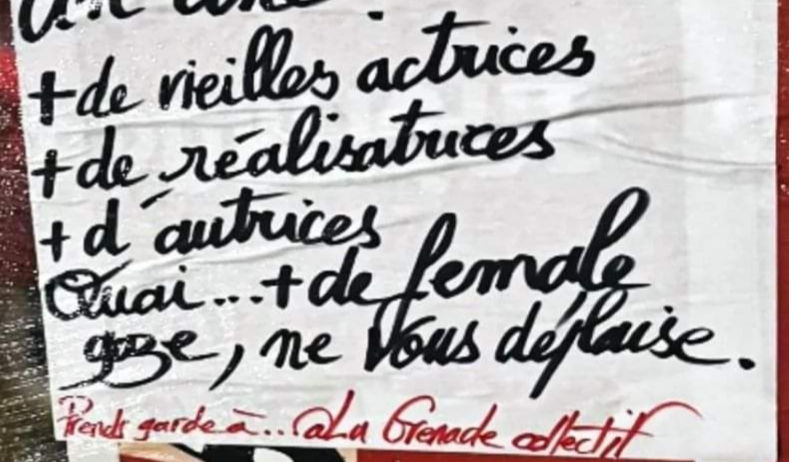 + de vieilles actrices
+ de réalisatrices
+ d'autrices
Ouai...+ de female
gaze, ne vous déplaise.
Prends garde à... @La Grenade collectif